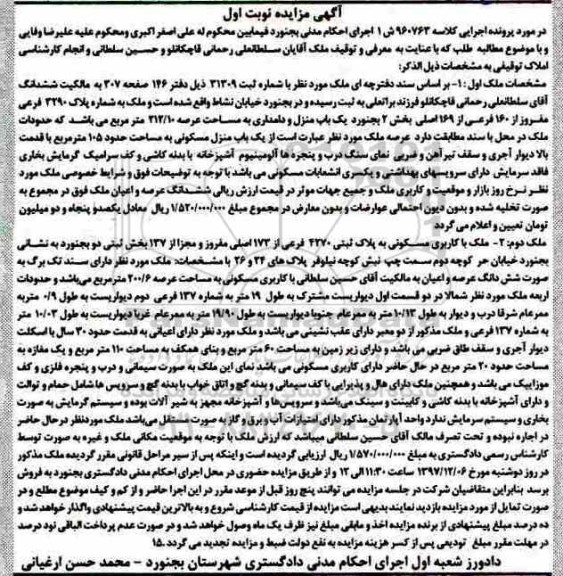 آگهی مزایده نوبت اول
در مورد پرونده اجرایی کلاسه ۹۶۰۷۶۳ ش ۱ اجرای احکام مدنی بجنورد فیمابین محکوم له علی اصغر اکبری ومحکوم علیه علیرضا وفایی
و با موضوع مطالبه طلب که با عنایت به معرفی و توقیف ملک آقایان سلطانعلی رحمانی قاچکانلو و حسین سلطانی و انجام کارشناسی
املاک توقیفی به مشخصات ذیل الذکر:
مشخصات ملک اول: ۱- بر اساس سند دفترچه ای ملک مورد نظر با شماره ثبت ۳۱۳۰۹ ذیل دفتر ۱۴۶ صفحه ۳۰۷ به مالکیت ششدانگ
آقای سلطانعلی رحمانی قاچکانلو فرزند براتعلی به ثبت رسیده و در بجنورد خیابان نشاط واقع شده است و ملک به شماره پلاک ۳۲۹۰ فرعی
مفروز از ۱۶۰ فرعی از ۱۶۹ اصلی بخش ۲ بجنورد یک باب منزل و دامداری به مساحت عرصه ۲۱۲/۱۰ متر مربع می باشد که حدودات
ملک در محل با سند مطابقت دارد عرصه ملک مورد نظر عبارت است از یک باب منزل مسکونی به مساحت حدود ۱۰۵ مترمربع با قدمت
بالا دیوار آجری و سقف تیر آهن و ضربی نمای سنگ درب و پنجره ها آلومینیوم آشپزخانه با بدنه کاشی و کف سرامیک گرمایش بخاری
فاقد سرمایش دارای سرویسهای بهداشتی و مشتری انشعابات مسکونی می باشد با توجه به توضیحات فوق و شرایط خصوصی ملک مورد
نظر نرخ روز بازار و موقعیت و کاربری ملک و جمیع جهات موثر در قیمت ارزش ریالی ششدانگ عرصه و اعیان ملک فوق در مجموع به
صورت تخلیه شده و بدون دیون احتمالی عوارضات و بدون معارض در مجموع مبلغ ۱/۵۲۰/۰۰۰/۰۰۰ ریال معادل یکصدو پنجاه و دو میلیون
تومان تعیین و اعلام می گردد
ملک دوم: ۲- ملک با کاربری مسکونی به پلاک ثبتی ۴۲۷۰ فرعی از ۱۷۳ اصلی مفروز و مجزا از ۱۳۷ بخش ثبتی دو بجنورد به نشانی
بجنورد خیابان حر کوچه دوم سمت چپ نبش کوچه نیلوفر پلاک های ۲۴ و ۲۶ با مشخصات: ملک مورد نظر دارای سند تک برگ به
صورت شش دانگ عرصه و اعیان به مالکیت آقای حسین سلطانی با کاربری مسکونی به مساحت عرصه ۲۰۰/۶ مترمربع می‌باشد و حدودات
اربعه ملک مورد نظر شمالا در دو قسمت اول دیواریست مشترک به طول ۱۹ متر به شماره ۱۳۷ فرعی دوم دیواریست به طول ۰/۹ متربه
ممرعام شرقا درب و دیوار به طول ۱۰/۱۳ متر به ممرعام جنوبا دیواریست به طول ۱۹/۹۰ متر به ممرعام غربا دیواریست به طول ۱۰/۰۳ متر
به شماره ۱۳۷ فرعی و ملک مذکور از دو معبر دارای عقب نشینی می باشد و ملک مورد نظر دارای اعیانی به قدمت حدود ۳۰ سال با اسکلت
دیوار آجری و سقف طاق ضربی می باشد و دارای زیر زمین به مساحت ۶۰ متر مربع و بنای همکف به مساحت ۱۱۰ متر مربع و یک مغازه به
مساحت حدود ۲۰ متر مربع در حال حاضر دارای کاربری مسکونی می باشد نمای این ملک به صورت سیمانی و درب و پنجره فلزی و کف
موزاییک می باشد و همچنین ملک دارای هال و پذیرایی با کف سیمانی و بدنه گچ و اتاق خواب با بدنه گچ و سرویس ها شامل حمام و توالت
و دارای آشپزخانه با بدنه کاشی و کابینت و سینک می‌باشد و سرویس‌ها و آشپزخانه مجهز به شیر آلات بوده و سیستم گرمایش به صورت
بخاری و سیستم سرمایش ندارد واحد آپارتمان مذکور دارای امتیازات آب و برق و گاز به صورت مستقل می‌باشد ملک موردنظر در حال حاضر
در اجاره نبوده و تحت تصرف مالک آقای حسین سلطانی میباشد که ارزش ملک با توجه به موقعیت مکانی ملک و غیره به صورت توسط
کارشناس رسمی دادگستری به مبلغ ۷/۵۷۰/۰۰۰/۰۰۰ ریال ارزیابی گردیده است و اینکه پس از سیر مراحل قانونی مقرر گردیده ملک مذکور
در روز دوشنبه مورخ ۱۳۹۷/۱۲/۰۶ ساعت ۱۱:۳۰ الی ۱۲ و از طریق مزایده حضوری در محل اجرای احکام مدنی دادگستری بجنورد به فروش
برسد بنابراین متقاضیان شرکت در جلسه مزایده می توانند پنج روز قبل از موعد مقرر در این اجرا حاضر و از کم و کیف موضوع مطلع و در
صورت تمایل از مورد مزایده بازدید نمایند بدیهی است مزایده از قیمت کارشناسی شروع و به بالاترین قیمت پیشنهادی واگذار خواهد شد و
ده درصد مبلغ پیشنهادی از برنده مزایده اخذ و مابقی مبلغ نیز ظرف یک ماه وصول خواهد شد و در صورت عدم پرداخت الباقی نود درصد
در مهلت مقرر مبلغ تودیعی پس از کسر هزینه مزایده به نفع دولت ضبط و مزایده تجدید می گردد .۱۵
دادورز شعبه اول اجرای احکام مدنی دادگستری شهرستان بجنورد - محمد حسن ارغیانی